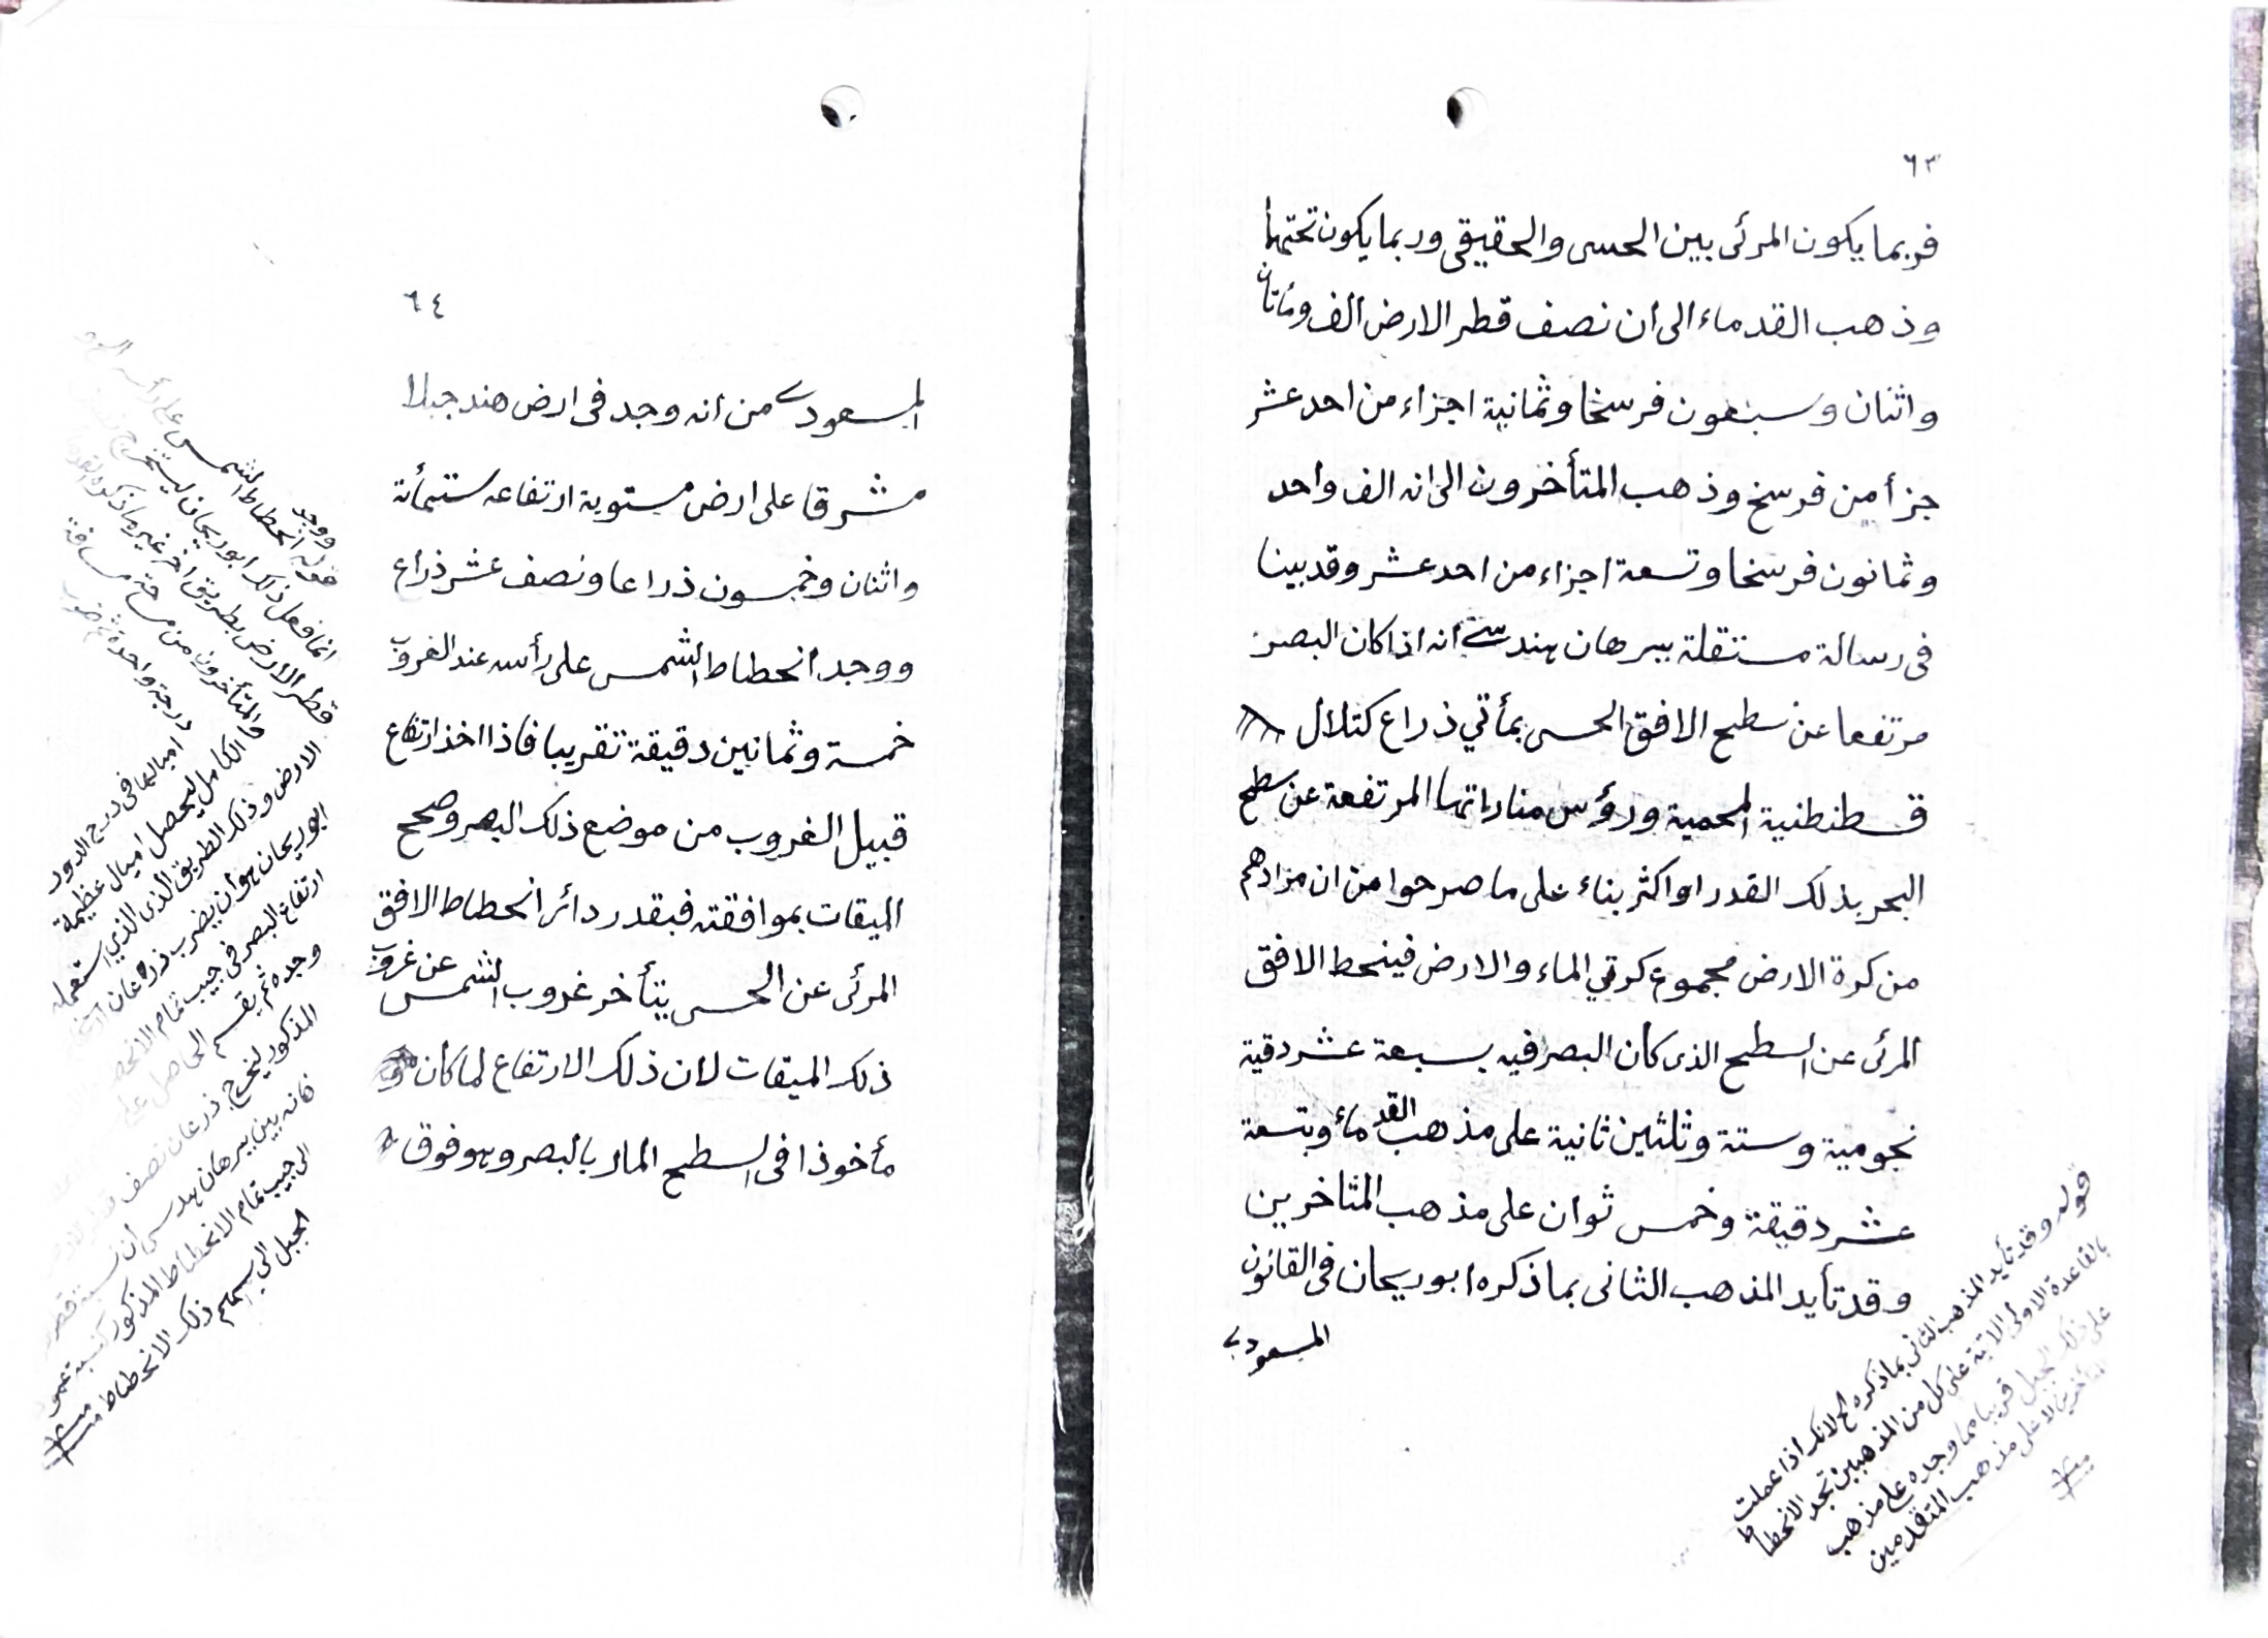 ٦٣
فربما يكون المرئى بين الحسى والحقيقى وربما يكون تحتهما
وذهب القدماء الى ان نصف قطر الارض الف ومأتان
واثنان وسبعون فرسخا وثمانية اجزاء من احد عشر
جزأ من فرسخ وذهب المتأخرون الى انه الف واحد
وثمانون فرسخا وتسعة اجزاء من احد عشر وقد بينا
فى رسالة مستقلة ببرهان هندسى انه اذا كان البصر
مرتفعا عن سطح الافق الحسى بمأتي ذراع كتلال
قسطنطنية المحمية ورؤس مناراتها المرتفعة عن سطح
البحر بذلك القدر او اكثر بناء على ما صرحوا من ان مرادهم
من كرة الارض مجموع كرتي الماء والارض فينحط الافق
المرئى عن السطح الذى كان البصر فيه بسبعة عشر دقيقة
نجومية وستة وثلثين ثانية على مذهب القدماء وبتسعة
عشر دقيقة وخمس ثوان على مذهب المتاخرين
وقد تأيد المذهب الثانى بما ذكره ابوريحان فى القانون
المسعودى
قوله وقد تأيد المذهب الثانى بما ذكره الخ لانك اذا عملت
بالقاعدة الاولى الاتية على كل من المذهبين تجد الانحطاط
على ذلك الجبل قريبا مما وجده على مذهب
المتأخرين لا على مذهب المتقدمين
منه
٦٤
المسعودى من انه وجد فى ارض هند جبلا
مشرقا على ارض مستوية ارتفاعه ستمأته
واثنان وخمسون ذراعا ونصف عشر ذراع
ووجد انحطاط الشمس على رأسه عند الغروب
خمسة وثمانين دقيقة تقريبا فاذا اخذ ارتفاع
قبيل الغروب من موضع ذلك البصر وصحح
الميقات بموافقته فبقدر دائر انحطاط الافق
المرئى عن الحسى يتأخر غروب الشمس عن غروب
ذلك الميقات لان ذلك الارتفاع لما كان
مأخوذا فى السطح المار بالبصر وهو فوق
قوله ووجد انحطاط الشمس على رأسه
انما فعل ذلك ابوريحان ليستخرج
قطر الارض بطريق اخر غير ما ذكره القدماء
والمتأخرون من مساحة مسافة
درجة واحدة ثم ضرب
اميالها فى درج الدور
الكامل ليحصل اميال عظيمة
الارض وذلك الطريق الذى استعمله
ابوريحان هو ان يضرب ذرعان
ارتفاع البصر فى جيب تمام
وجده ثم يقسم الحاصل على
المذكور ليخرج ذرعان نصف
فانه بين ببرهان هندسى ان نسبة
الى جيب تمام الانحطاط المذكور كنسبة عمود
الجبل الى سهم ذلك الانحطاط منه